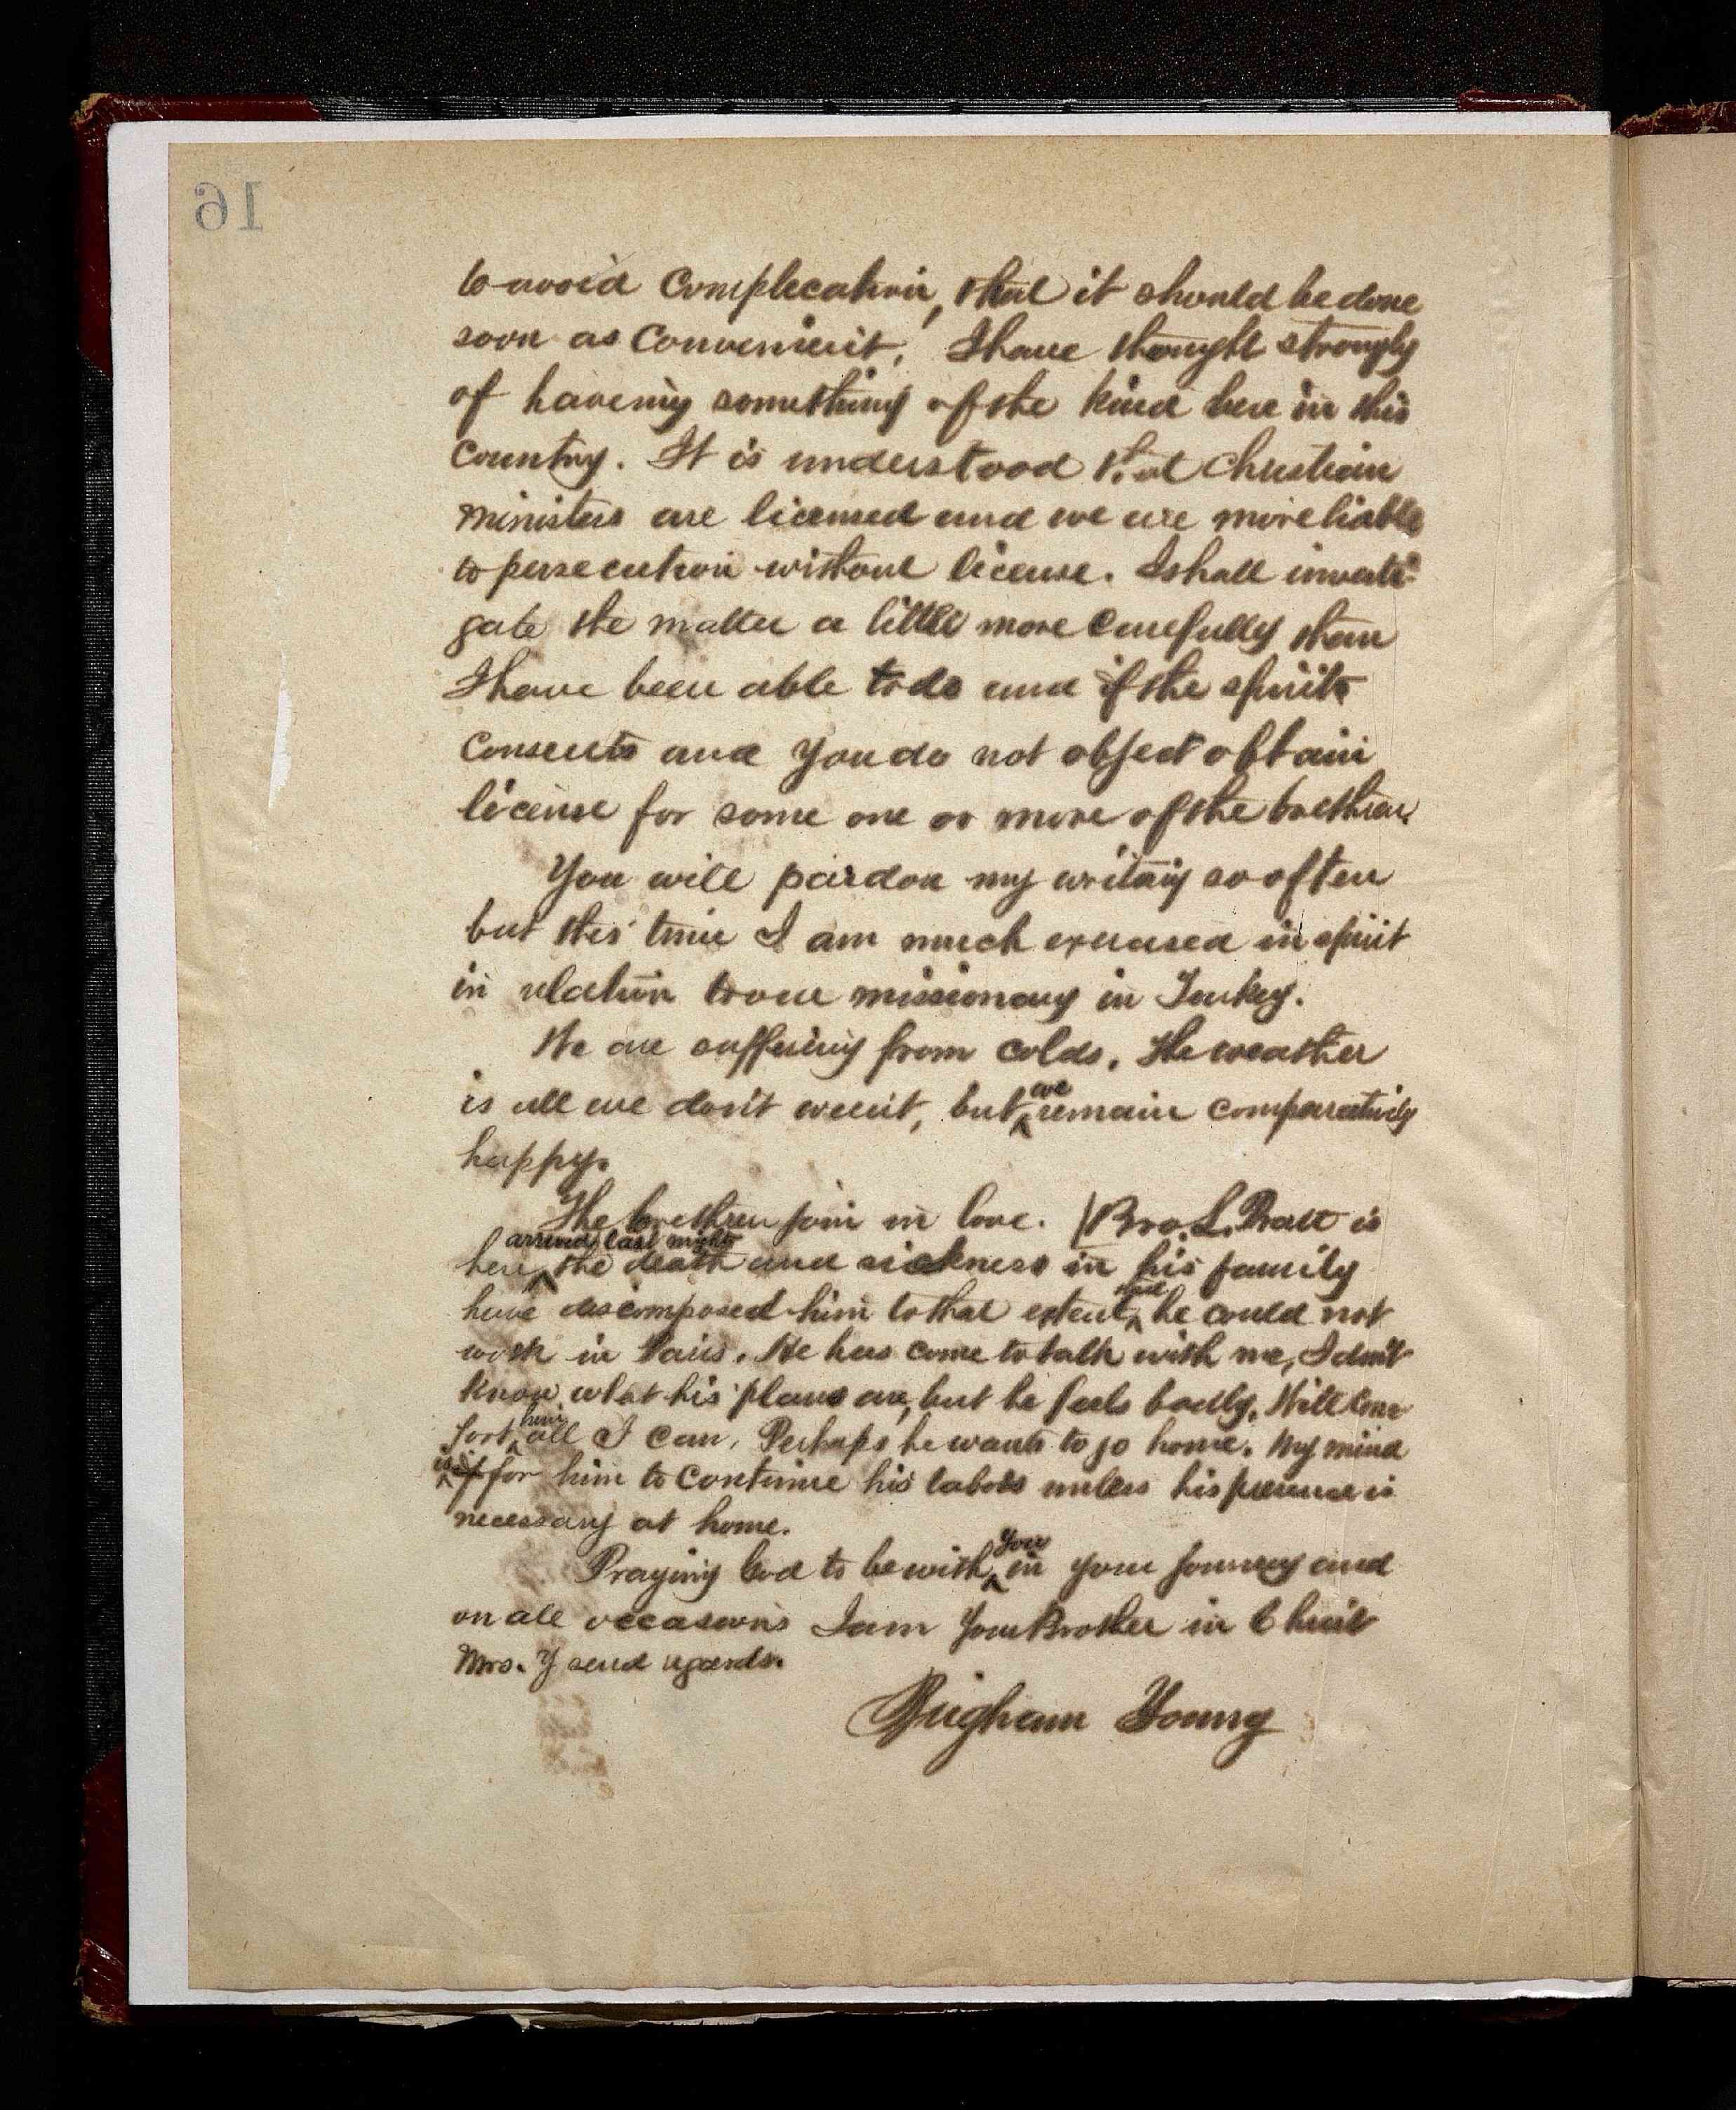 16
to avoid Complecation, that it should be done
soon as Convenient. I have thought strongly
of haveing something of the kind here in this
Country. It is understood that Christian
Ministers are licensed and we are more liable
to persecution without license. I shall investi-
gate the matter a little more carefully than
I have been able to do and if the spirit
Consents and you do not object obtain
license for some one or more of the brethren.
You will pardon my writing so often
but this time I am much exercised in spirit
in relation to our missionary in Turkey.
We are suffering from colds. The weather
is all we don't want, but we remain comparatively
happy.
The brethren join in love. Bro. L. Pratt is
here arrived last night the death and sickness in his family
have discomposed him to that extent that he could not
work in Paris. He has come to talk with me, I don't
know what his plans are, but he feels badly. Will com
fort him all I can. Perhaps he wants to go home. My mind
is for him to continue his labors unless his presence is
necessary at home.
Praying God to be with you in your journey and
on all occasions I am Your Brother in Christ
Mrs. Y send regards.
Brigham Young